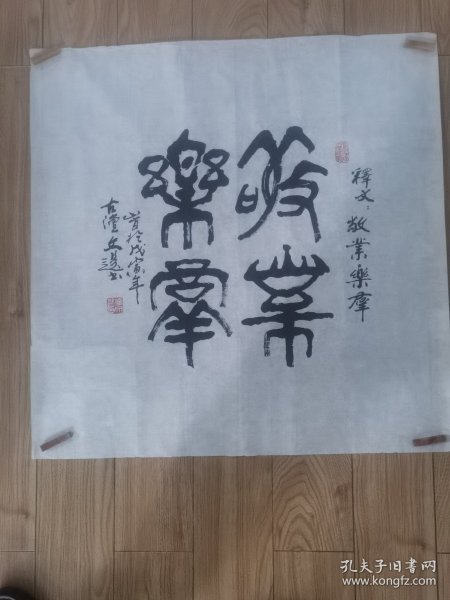 释文：敬業樂群
敬業
樂群
首於戊寅年
古潭
书
孔夫子旧书网
www.kongfz.com